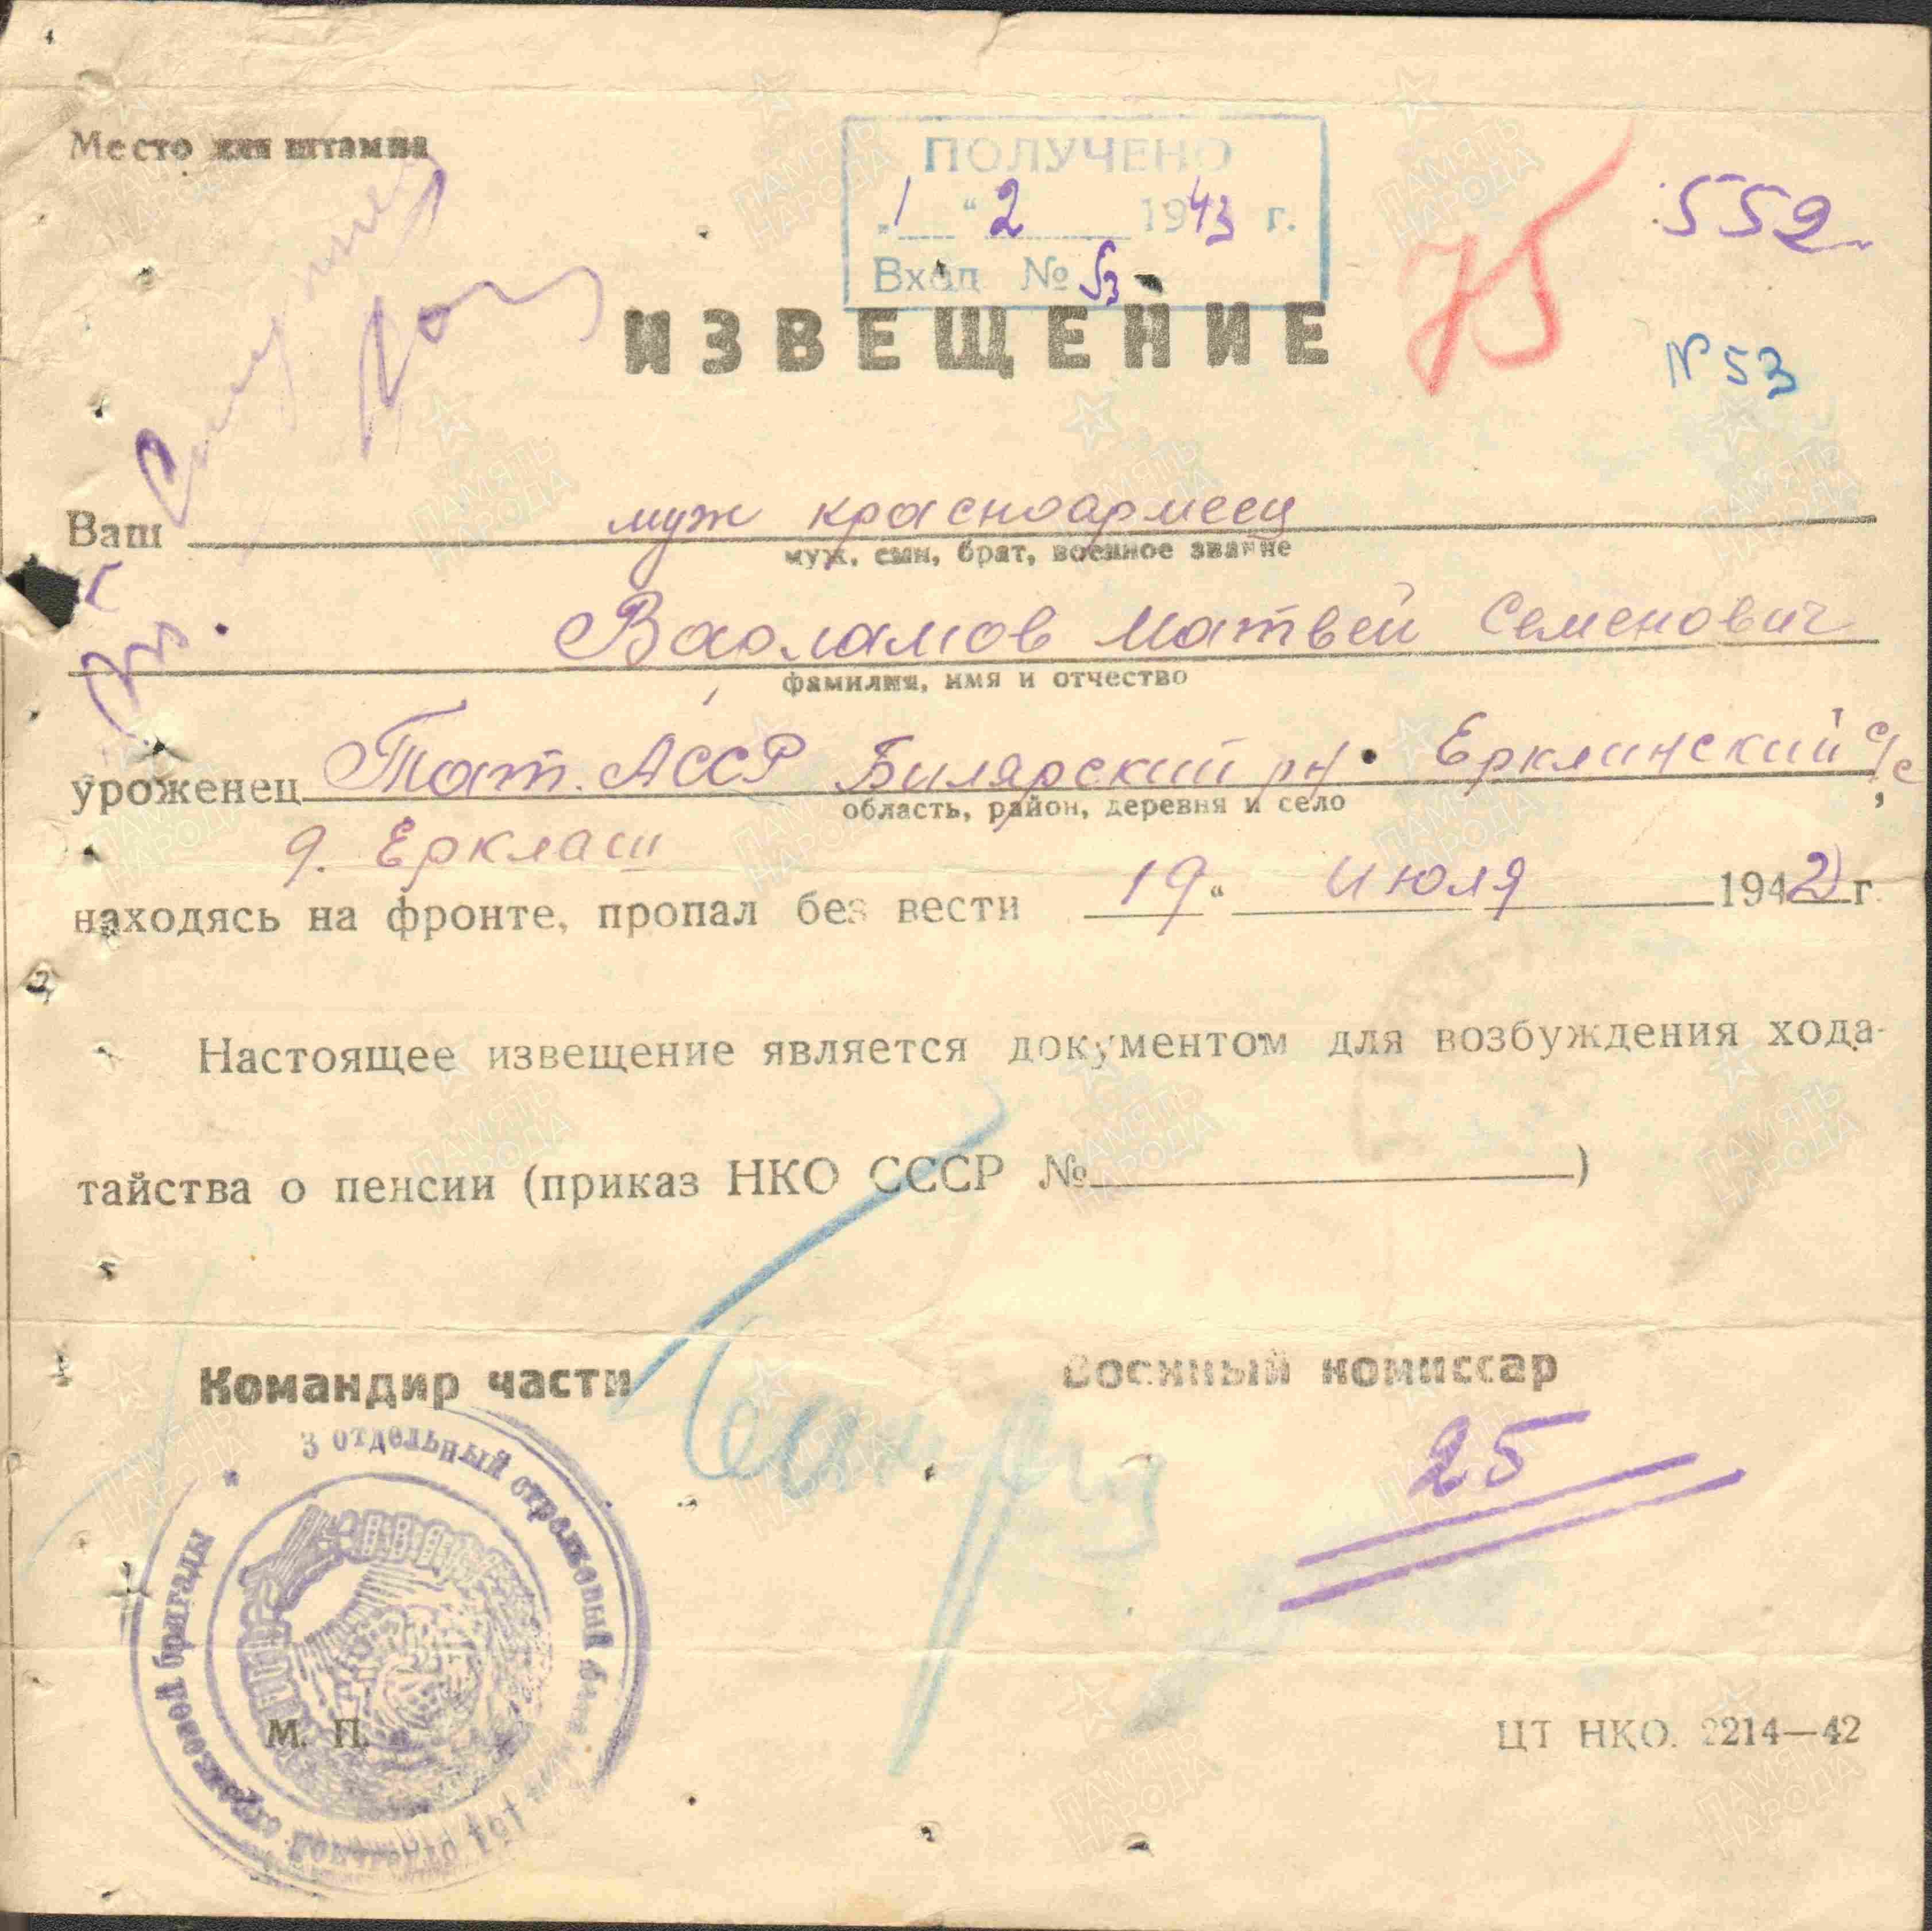 Место для штампа
ПОЛУЧЕНО
„1“ 2 1943 г.
Вход № 53
75
552
ИЗВЕЩЕНИЕ
№ 53
Ваш муж красноармеец
муж, сын, брат, военное звание
Варламов Матвей Семенович
фамилия, имя и отчество
уроженец Тат. АССР Билярский р-н. Ерклинский с/с,
область, район, деревня и село
д. Ерклаш
находясь на фронте, пропал без вести 19“ июля 1942 г.
Настоящее извещение является документом для возбуждения хода-
тайства о пенсии (приказ НКО СССР № )
Командир части
Военный комиссар
25
3 отдельный стрелковый
отдельной стрелковой бригады
М. П.
ЦТ НКО. 2214—42
ПАМЯТЬ НАРОДА